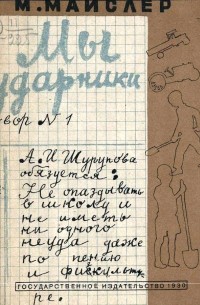 М. МАЙСЛЕР
Мы
ударники
вор N 1
А.И Шурупова
обязуется:
Не опаздывать
в школу и
не иметь
ни одного
неуда даже
по пению
и физкульт
ГОСУДАРСТВЕННОЕ ИЗДАТЕЛЬСТВО 1930
ре.